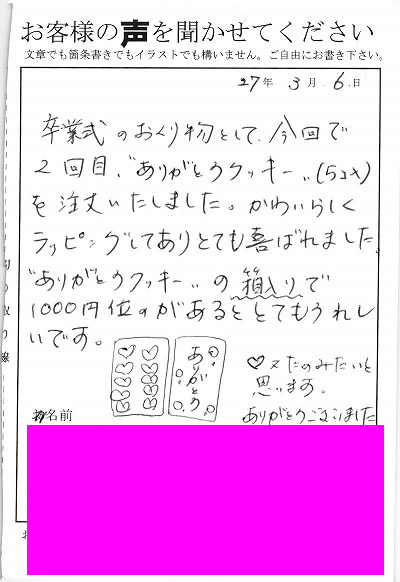 お客様の声を聞かせてください
文章でも箇条書きでもイラストでも構いません。ご自由にお書き下さい。
27年 3月 6日
卒業式のおくり物として、今回で
2回目、"ありがとうクッキー"(5コ入)
を注文いたしました。かわいらしく
ラッピングしてありとても喜ばれました。
"ありがとうクッキー"の箱入りで
1000円位のがあるととてもうれし
いです。
ありがとう
♡又たのみたいと
思います。
ありがとうございました
お名前
切り取り線